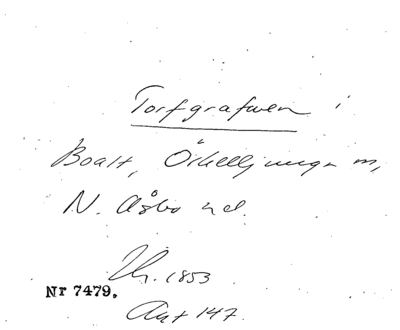 Torfgrafwen i
Boalt, Örkelljunga sn,
N. Åsbo hd.
Th. 1853
Nr 7479.
Aug 147.